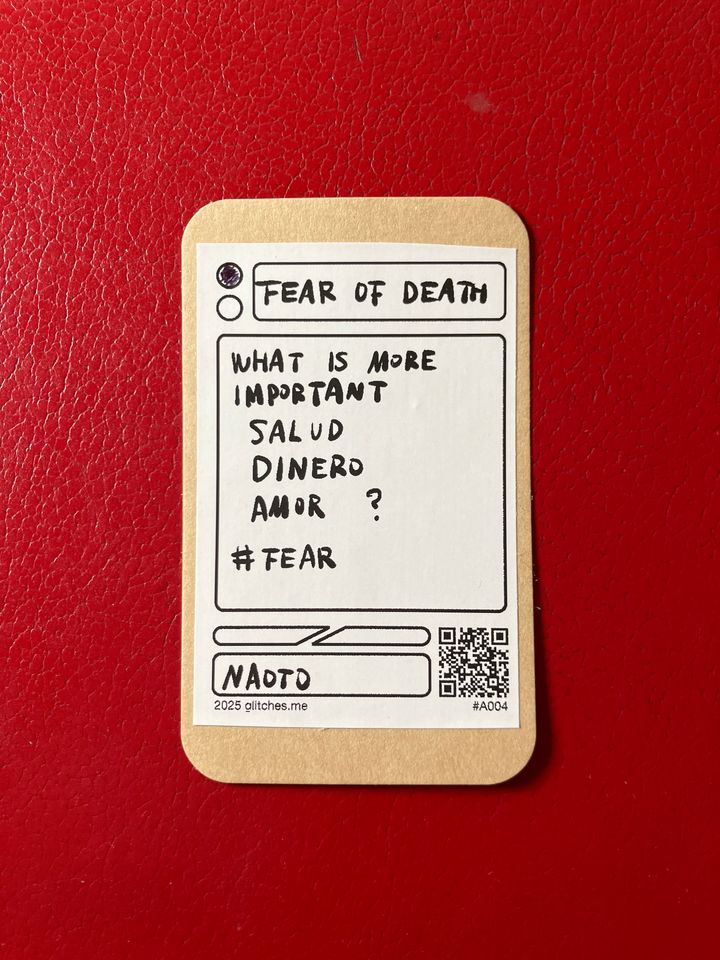 FEAR OF DEATH
WHAT IS MORE
IMPORTANT
SALUD
DINERO
AMOR ?
#FEAR
NAOTO
2025 glitches.me
#A004